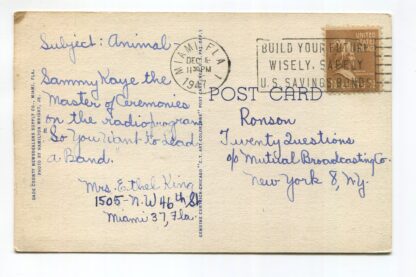 Subject: Animal
Sammy Kaye the
Master of Ceremonies
on the radio program
So You Want to Lead
a Band.
Mrs. Ethel King
1505-N.W 46th St
Miami 37, Fla.
MIAMI, FLA.
DEC
PM
BUILD YOUR FUTURE
WISELY, SAFELY
U.S. SAVINGS BONDS
UNITED STATES
POST CARD
Ronson
Twenty Questions
c/o Mutual Broadcasting Co.
New York 8, N.Y.
DADE COUNTY NEWSDEALERS SUPPLY CO., MIAMI, FLA.
PHOTO BY HAMILTON WRIGHT, JR.